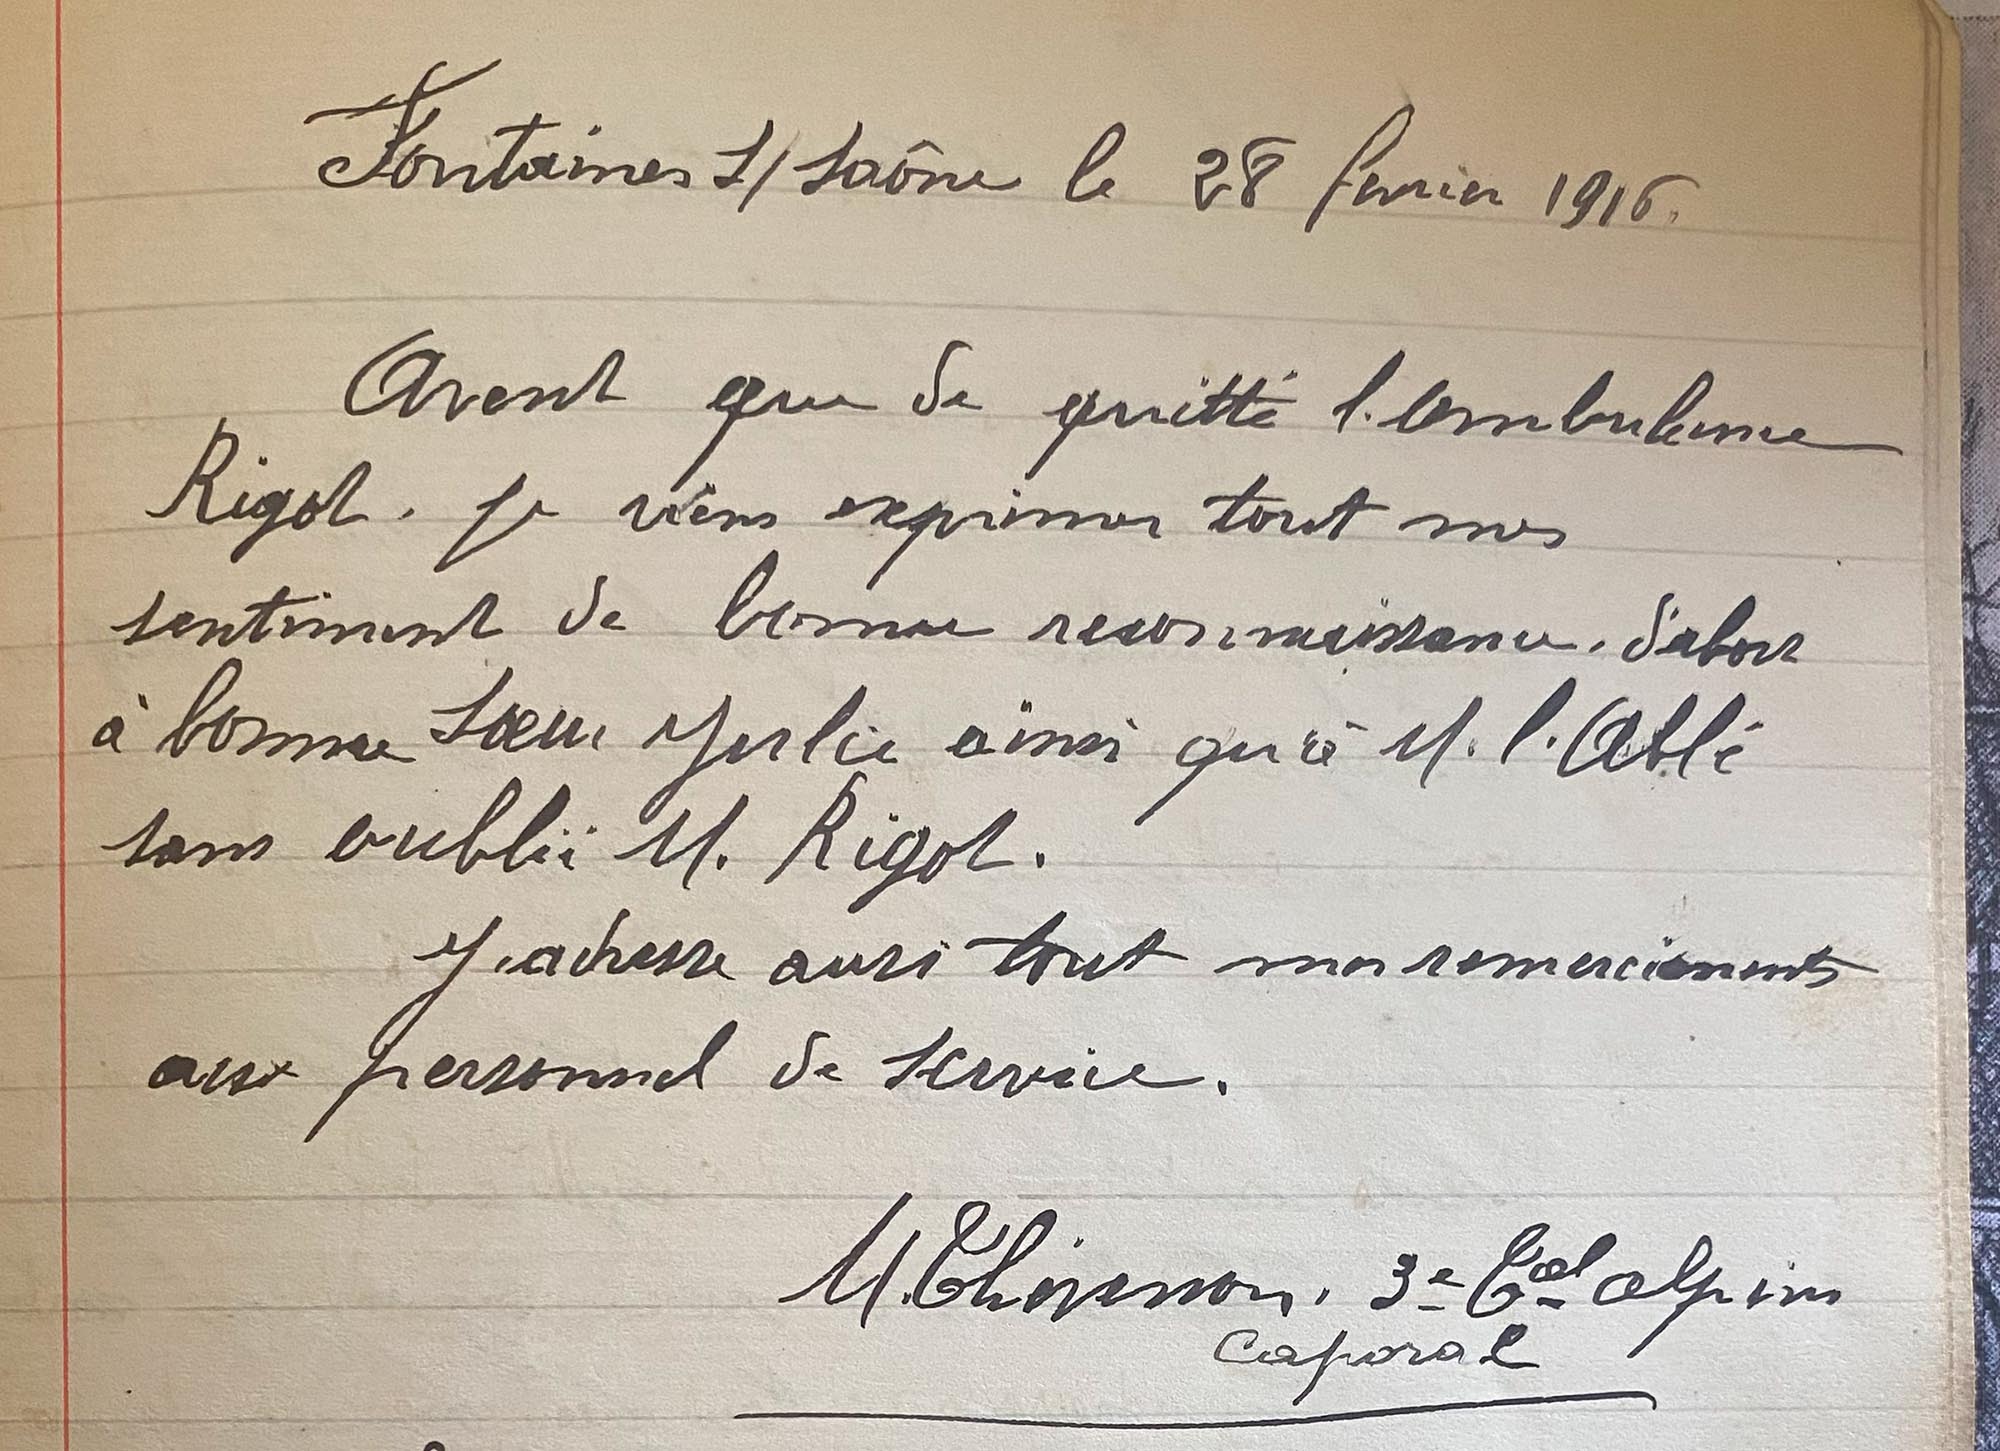 Fontaines s/ Saône le 28 fevrier 1916.
Avent que de quitté l'ambulance
Rigot. je viens exprimer tout mes
sentiment de bonne reconnaissance. d'abort
à bonne Sœur Julie ainsi qu'à M. l'Abbé
sans oublïi M. Rigot.
J'adresse aussi tout mes remerciements
aux personnel de service.
M. 3e alpins
Caporal